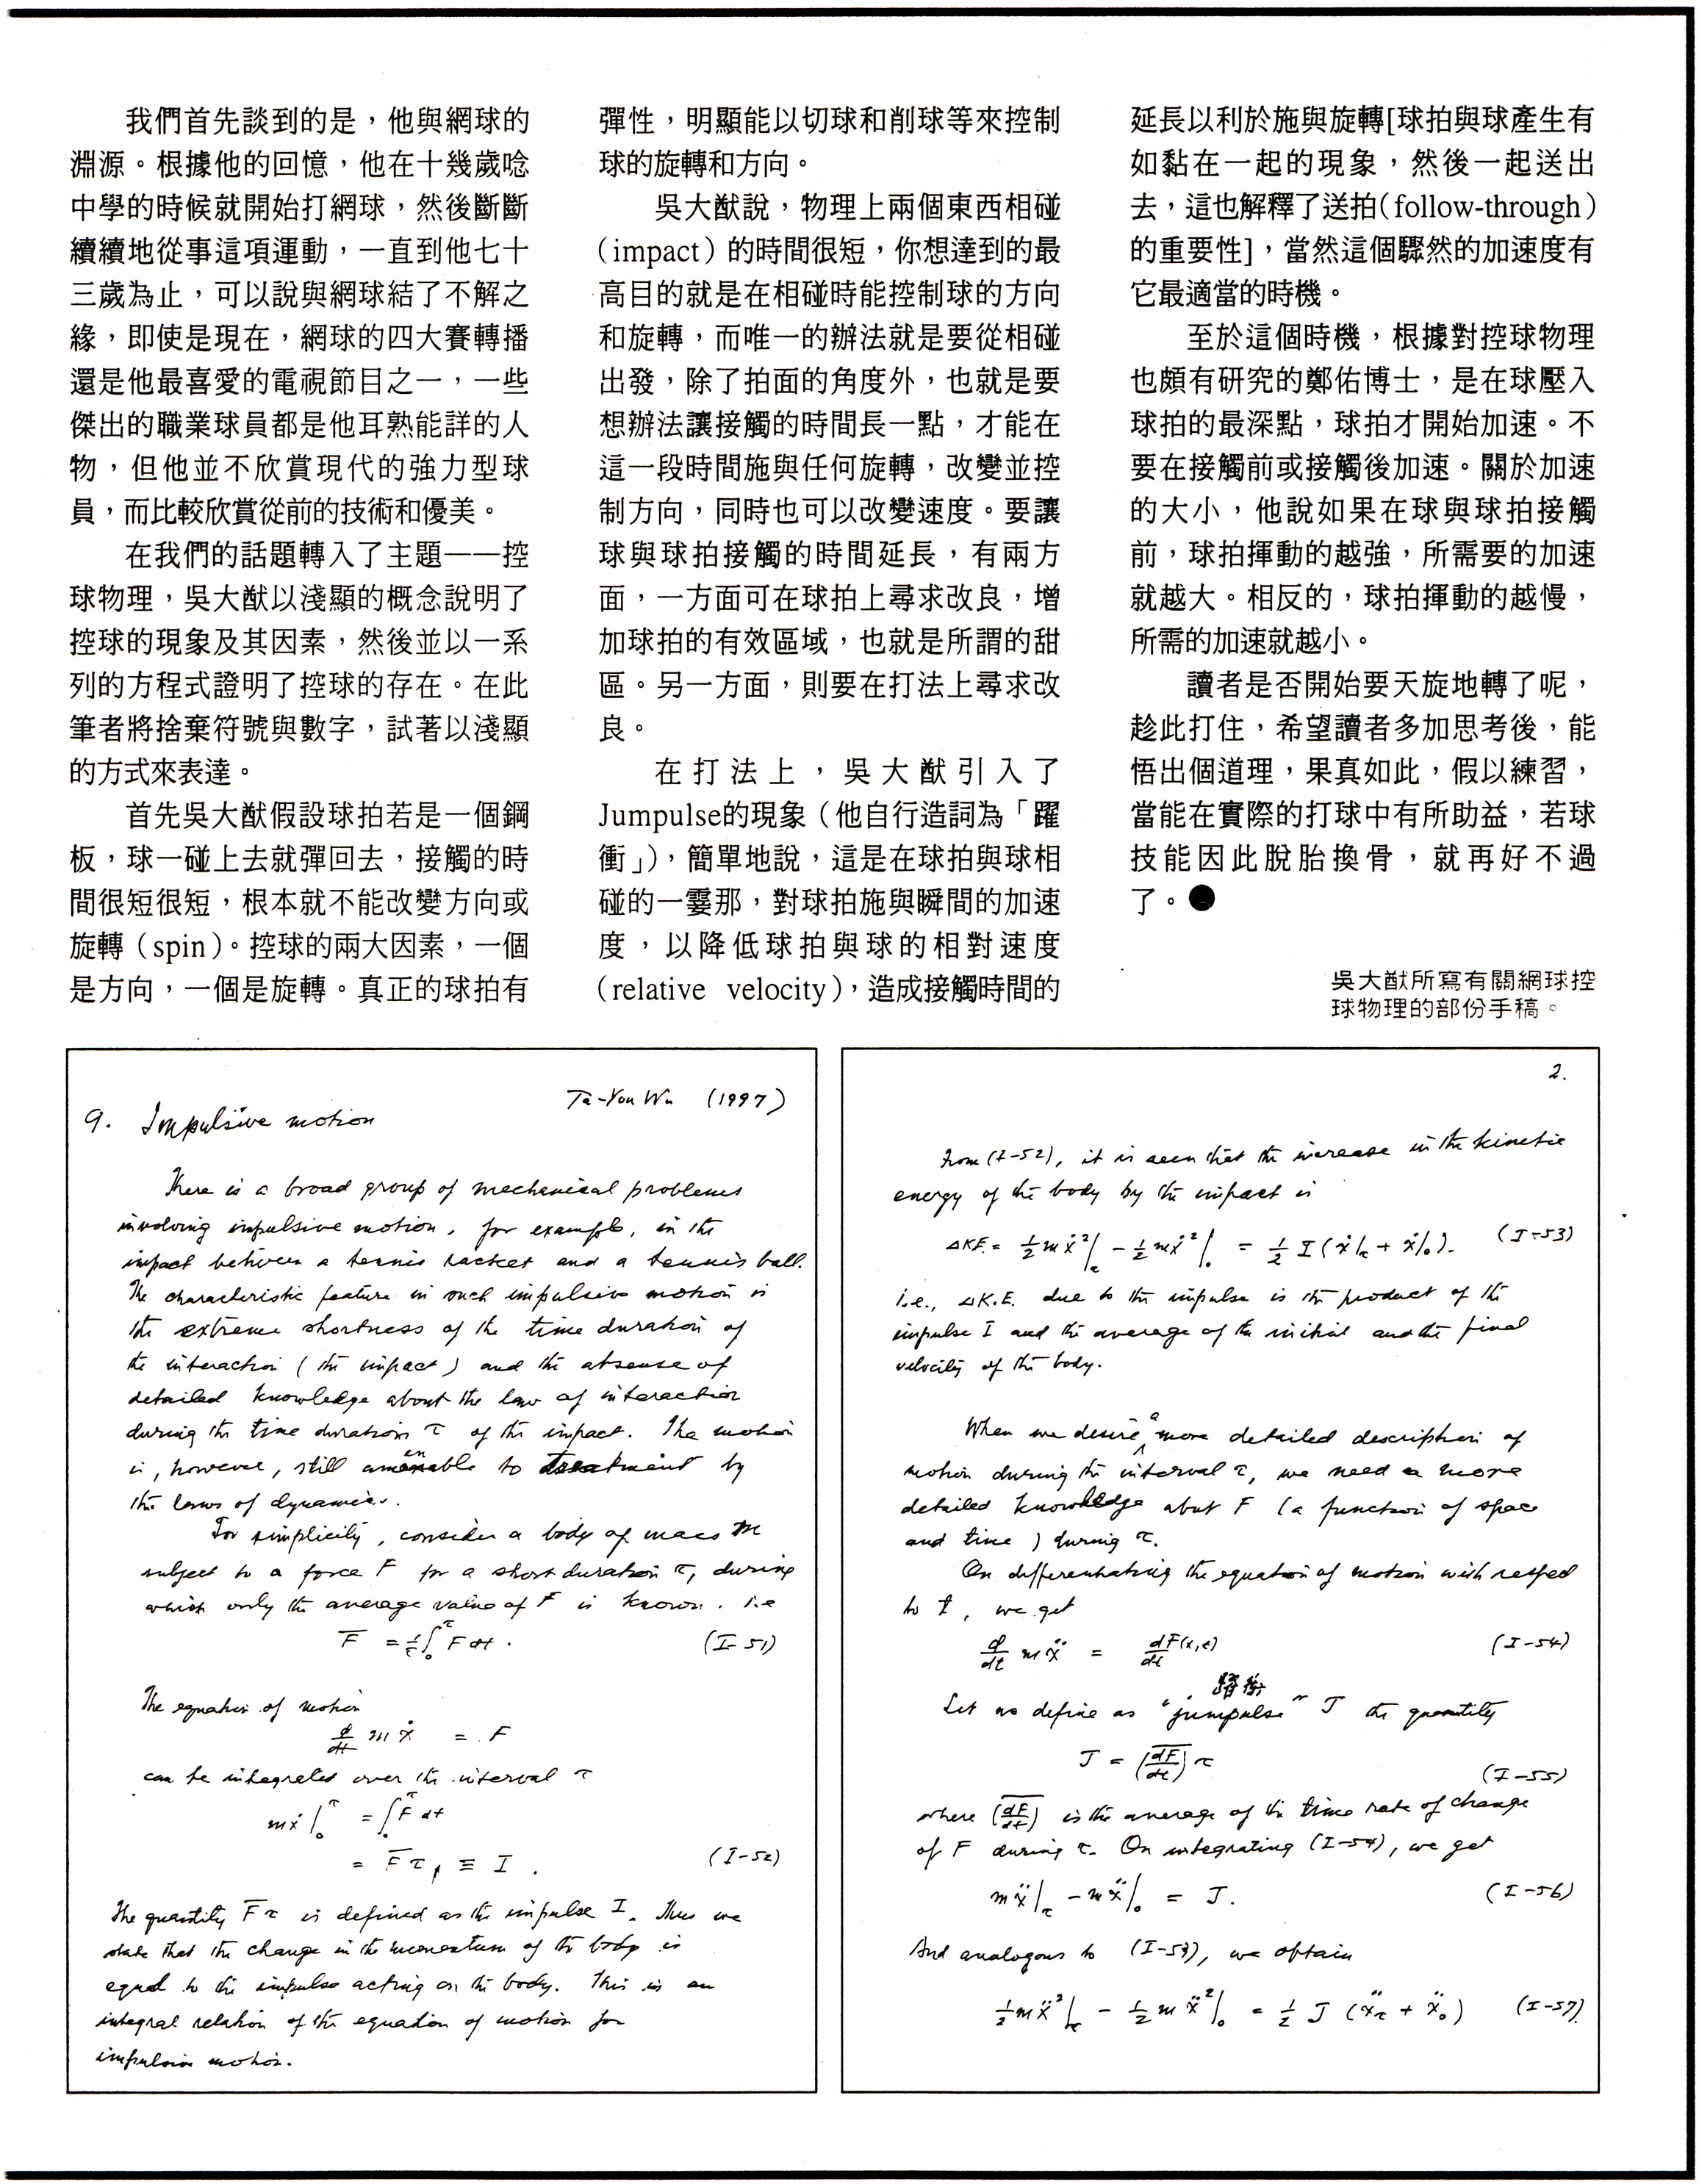 我們首先談到的是，他與網球的
淵源。根據他的回憶，他在十幾歲唸
中學的時候就開始打網球，然後斷斷
續續地從事這項運動，一直到他七十
三歲為止，可以說與網球結了不解之
緣，即使是現在，網球的四大賽轉播
還是他最喜愛的電視節目之一，一些
傑出的職業球員都是他耳熟能詳的人
物，但他並不欣賞現代的強力型球
員，而比較欣賞從前的技術和優美。
在我們的話題轉入了主題——控
球物理，吳大猷以淺顯的概念說明了
控球的現象及其因素，然後並以一系
列的方程式證明了控球的存在。在此
筆者將捨棄符號與數字，試著以淺顯
的方式來表達。
首先吳大猷假設球拍若是一個鋼
板，球一碰上去就彈回去，接觸的時
間很短很短，根本就不能改變方向或
旋轉（spin）。控球的兩大因素，一個
是方向，一個是旋轉。真正的球拍有
彈性，明顯能以切球和削球等來控制
球的旋轉和方向。
吳大猷說，物理上兩個東西相碰
（impact）的時間很短，你想達到的最
高目的就是在相碰時能控制球的方向
和旋轉，而唯一的辦法就是要從相碰
出發，除了拍面的角度外，也就是要
想辦法讓接觸的時間長一點，才能在
這一段時間施與任何旋轉，改變並控
制方向，同時也可以改變速度。要讓
球與球拍接觸的時間延長，有兩方
面，一方面可在球拍上尋求改良，增
加球拍的有效區域，也就是所謂的甜
區。另一方面，則要在打法上尋求改
良。
在打法上，吳大猷引入了
Jumpulse的現象（他自行造詞為「躍
衝」），簡單地說，這是在球拍與球相
碰的一霎那，對球拍施與瞬間的加速
度，以降低球拍與球的相對速度
（relative velocity），造成接觸時間的
延長以利於施與旋轉[球拍與球產生有
如黏在一起的現象，然後一起送出
去，這也解釋了送拍（follow-through）
的重要性]，當然這個驟然的加速度有
它最適當的時機。
至於這個時機，根據對控球物理
也頗有研究的鄭佑博士，是在球壓入
球拍的最深點，球拍才開始加速。不
要在接觸前或接觸後加速。關於加速
的大小，他說如果在球與球拍接觸
前，球拍揮動的越強，所需要的加速
就越大。相反的，球拍揮動的越慢，
所需的加速就越小。
讀者是否開始要天旋地轉了呢，
趁此打住，希望讀者多加思考後，能
悟出個道理，果真如此，假以練習，
當能在實際的打球中有所助益，若球
技能因此脫胎換骨，就再好不過
了。
吳大猷所寫有關網球控
球物理的部份手稿。
Ta-You Wu (1997)
9. Impulsive motion
There is a broad group of mechanical problems
involving impulsive motion, for example, in the
impact between a tennis racket and a tennis ball.
The characteristic feature in such impulsive motion is
the extreme shortness of the time duration of
the interaction (the impact) and the absense of
detailed knowledge about the law of interaction
during the time duration τ of the impact. The motion
is, however, still amenable to treatment by
the laws of dynamics.
For simplicity, consider a body of mass m
subject to a force F for a short duration τ, during
which only the average value of F is known. i.e
F̄ = 1/τ ∫₀^τ F dt. (I-51)
The equation of motion
d/dt m ẋ = F
can be integrated over the interval τ
mẋ|₀^τ = ∫₀^τ F dt
= F̄ τ, ≡ I. (I-52)
The quantity F̄τ is defined as the impulse I. Thus we
state that the change in the momentum of the body is
equal to the impulse acting on the body. This is an
integral relation of the equation of motion for
impulsive motion.
2.
From (I-52), it is seen that the increase in the kinetic
energy of the body by the impact is
ΔKE = ½mẋ²|τ - ½mẋ²|₀ = ½ I (ẋ|τ + ẋ|₀). (I-53)
i.e., ΔK.E. due to the impulse is the product of the
impulse I and the average of the initial and the final
velocity of the body.
When we desire a more detailed description of
motion during the interval τ, we need a more
detailed knowledge about F (a function of space
and time) during τ.
On differentiating the equation of motion with respect
to t, we get
d/dt m ẍ = dF(x,t)/dt (I-54)
躍衝
Let us define as "jumpulse" J the quantity
J = (dF/dt)‾ τ (I-55)
where (dF/dt)‾ is the average of the time rate of change
of F during τ. On integrating (I-54), we get
mẍ|τ - mẍ|₀ = J. (I-56)
And analogous to (I-53), we obtain
½mẍ²|τ - ½mẍ²|₀ = ½ J (ẍτ + ẍ₀) (I-57)